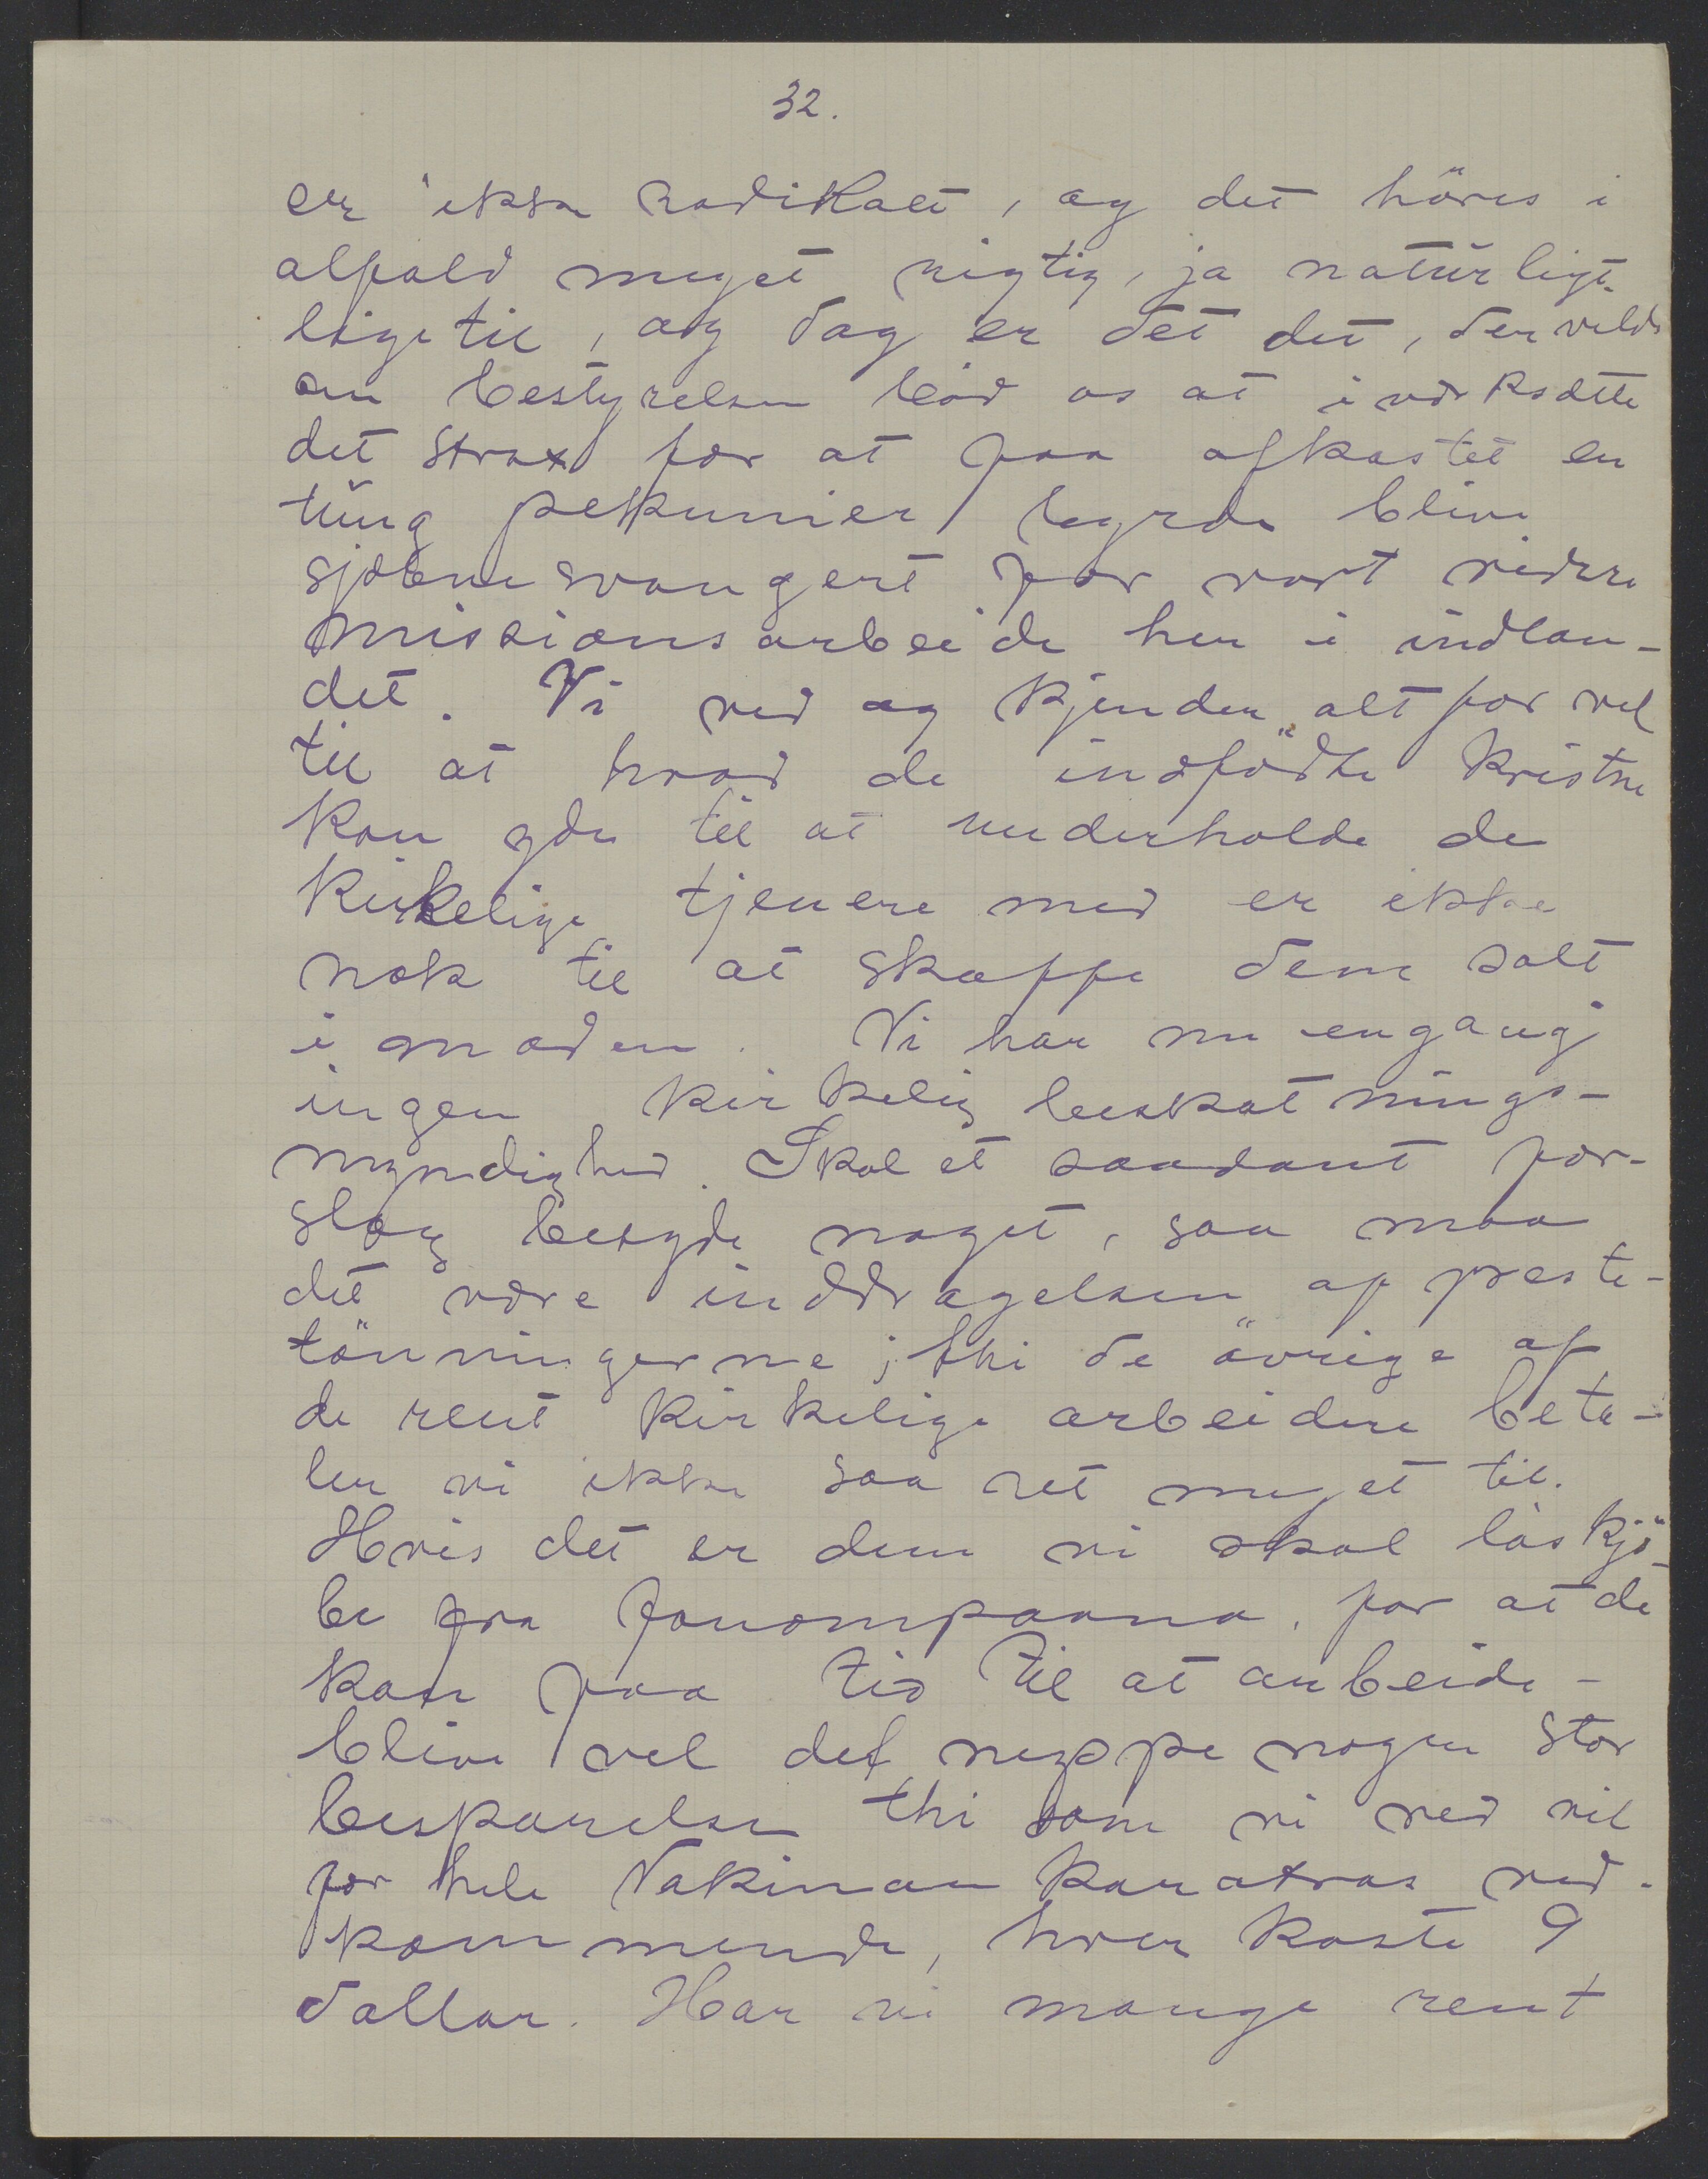 32.
er ikke radikalt, og det höres i
alfald meget rigtig, ja natürligt
ligetil, og dog er det det, der vilde
om bestyrelsen böd os at iværksætte
det strax for at faa afkastet en
tüng pekuniær byrde blive
skjæbnesvangert for vort videre
missionsarbeide her i indlan-
det. Vi ved og kjender alt for vel
til at hvad de indfödte kristne
kan yde til at underholde de
kirkelige tjenere med er ikke
nok til at skaffe dem salt
i maden. Vi har nu engang
ingen kirkelig beskatnings-
myndighed. Skal et saadant for-
slag betyde noget, saa maa
det være inddragelsen af preste-
lönningerne; thi de övrige af
de rent kirkelige arbeidere beta-
ler vi ikke saa ret meget til.
Hvis det er dem vi skal löskjö-
be fra fanompoana, for at de
kan faa tid til at arbeide -
blive vel det neppe nogen stor
besparelse thi som vi ved vil
for hele Vakinankaratras ved-
kommende, hver koste 9
dollar. Har vi mange rent